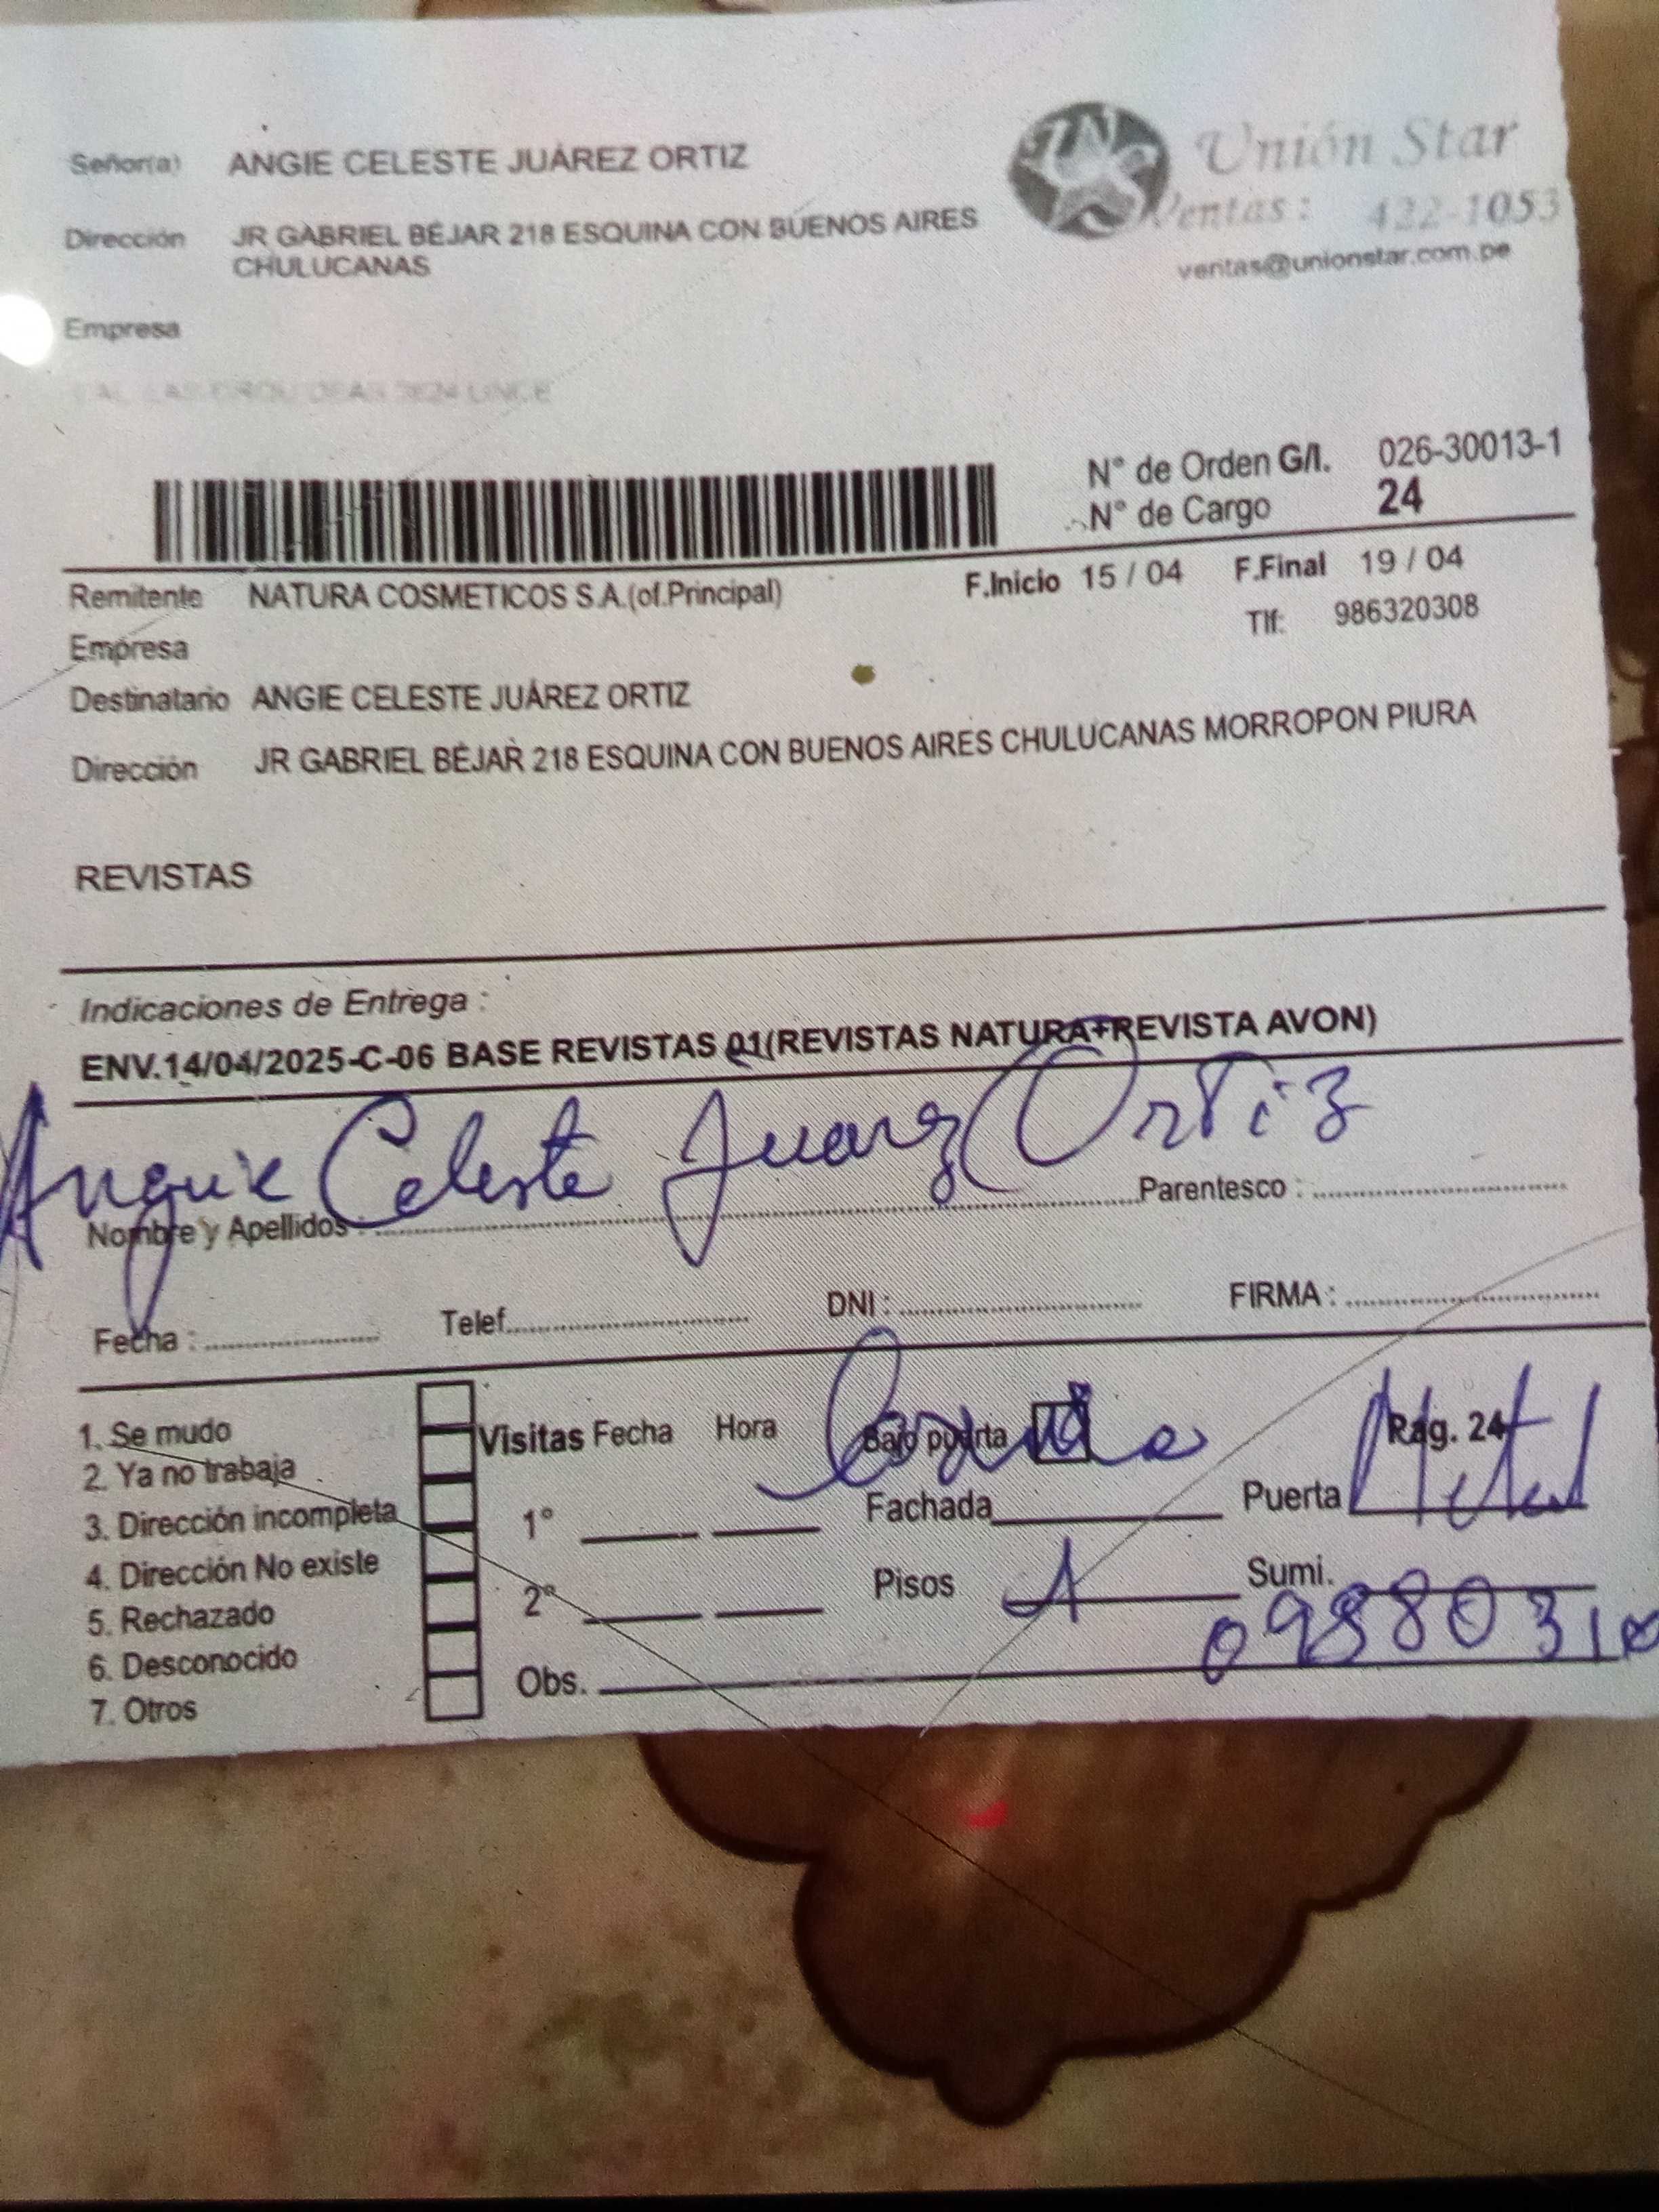 Señor(a) ANGIE CELESTE JUÁREZ ORTIZ
Unión Star
Dirección JR GABRIEL BÉJAR 218 ESQUINA CON BUENOS AIRES
CHULUCANAS
Ventas: 422-1053
ventas@unionstar.com.pe
Empresa
N° de Orden G/I. 026-30013-1
N° de Cargo 24
Remitente NATURA COSMETICOS S.A.(of.Principal) F.Inicio 15 / 04 F.Final 19 / 04
Empresa Tlf: 986320308
Destinatario ANGIE CELESTE JUÁREZ ORTIZ
Dirección JR GABRIEL BÉJAR 218 ESQUINA CON BUENOS AIRES CHULUCANAS MORROPON PIURA
REVISTAS
Indicaciones de Entrega :
ENV.14/04/2025-C-06 BASE REVISTAS 01(REVISTAS NATURA+REVISTA AVON)
Angie Celeste Juarez Ortiz
Nombre y Apellidos : Parentesco :
Fecha : Telef. DNI : FIRMA :
1. Se mudo
2. Ya no trabaja
3. Dirección incompleta
4. Dirección No existe
5. Rechazado
6. Desconocido
7. Otros
Visitas Fecha Hora Bajo puerta Rag. 24
1° Fachada Puerta Metal
2° Pisos 1 Sumi.
Obs.